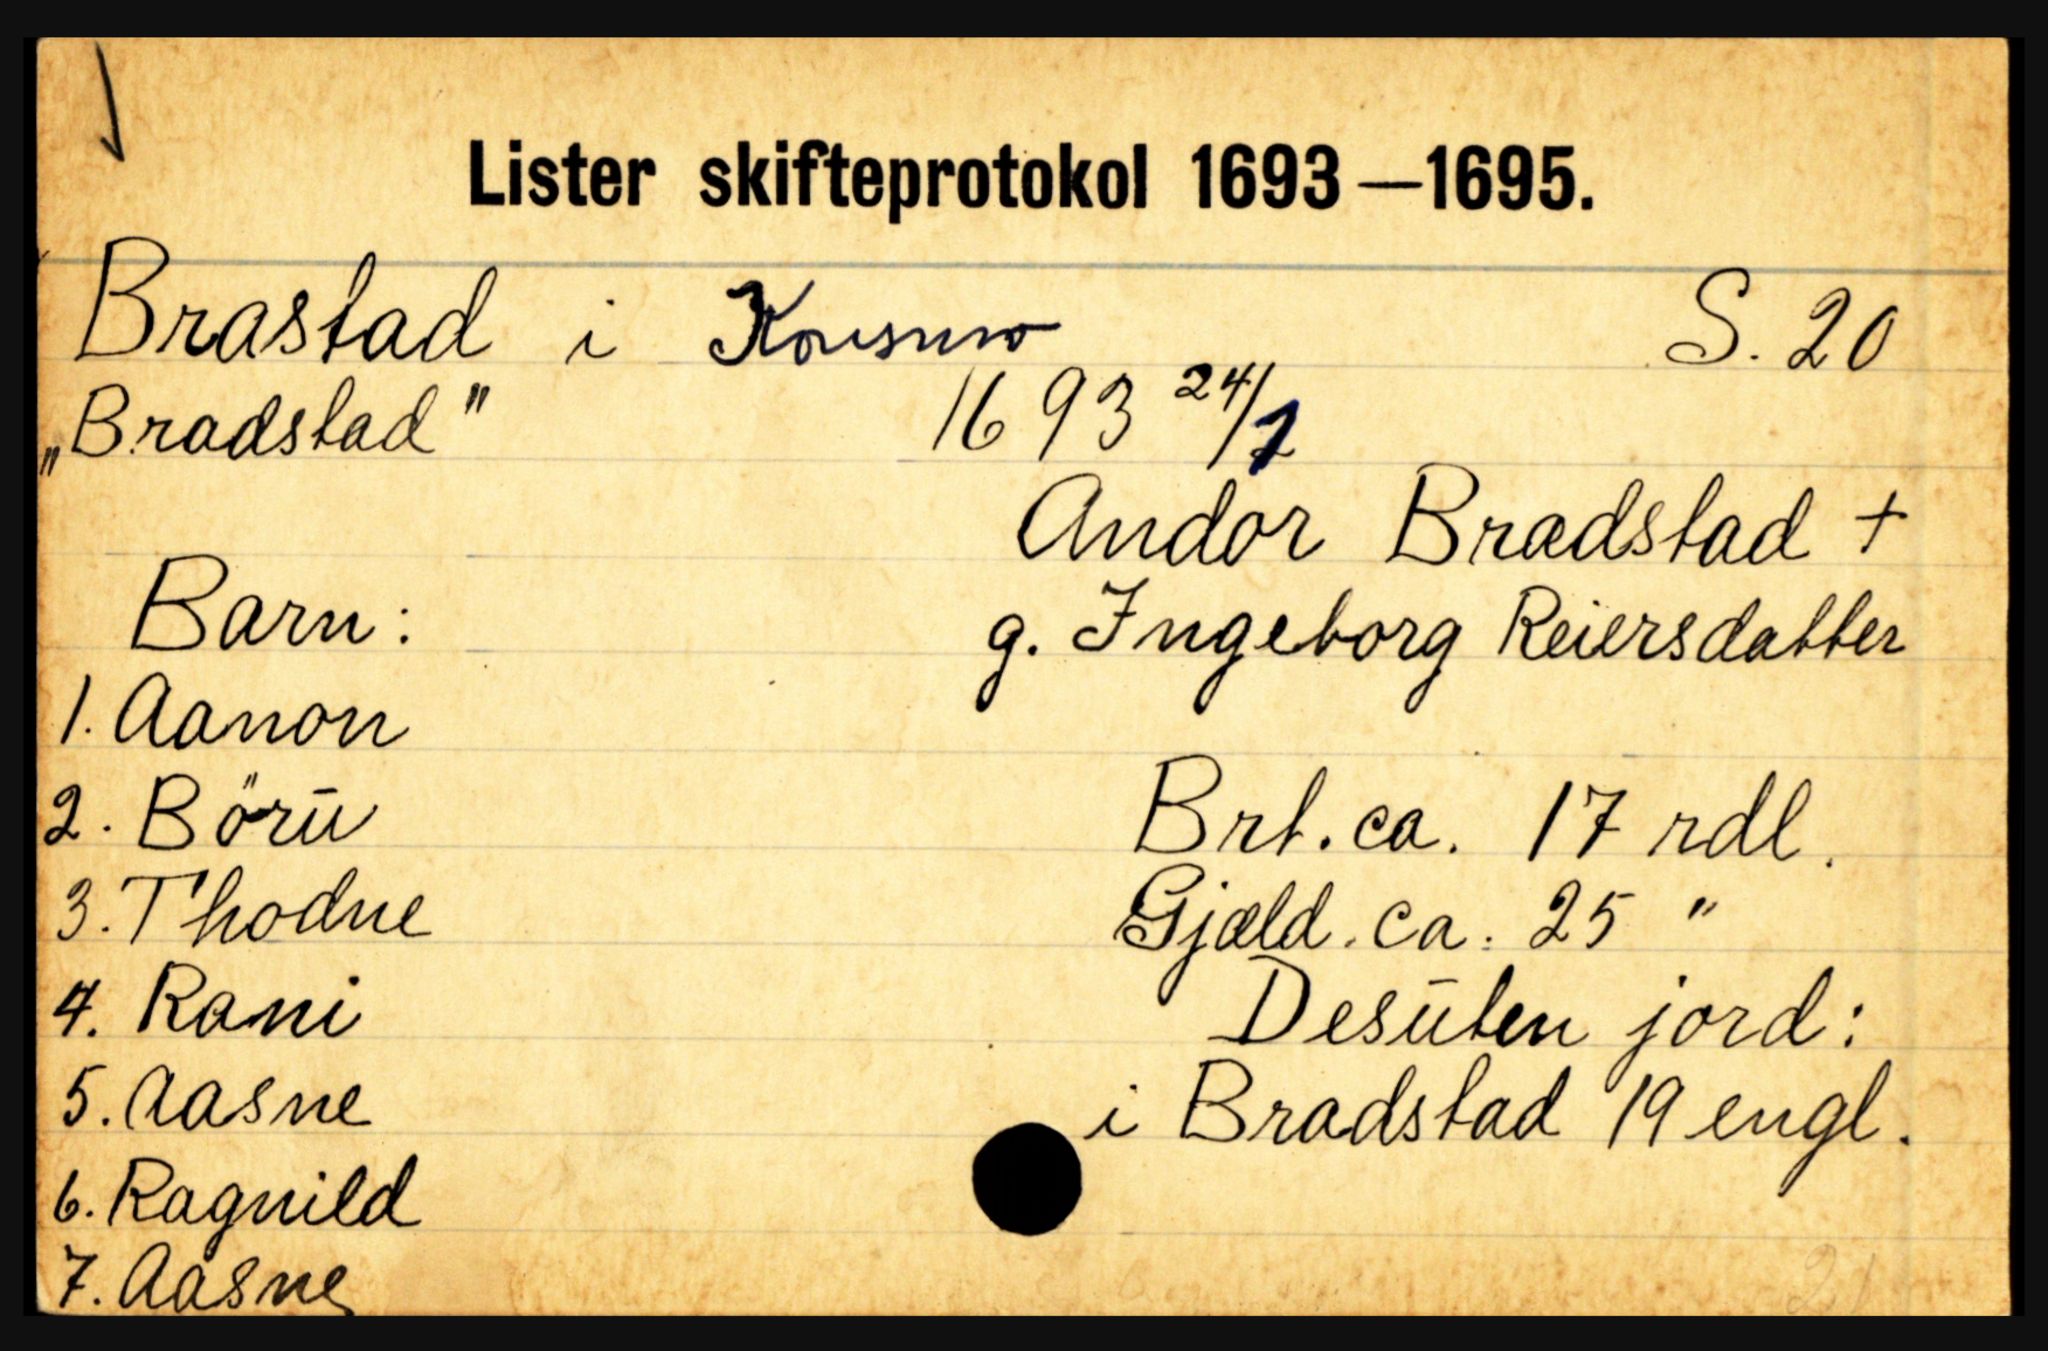 Lister skifteprotokol 1693—1695.
Brastad i Konsmo S. 20
„Bradstad" 1693 24/7
Andor Bradstad +
Barn: g. Ingeborg Reiersdatter
1. Aanon
2. Börū Brt. ca. 17 rdl.
3. Thodne Gjæld. ca. 25 "
4. Rani Desūten jord:
5. Aasne i Bradstad 19 engl.
6. Ragnild
7. Aasne